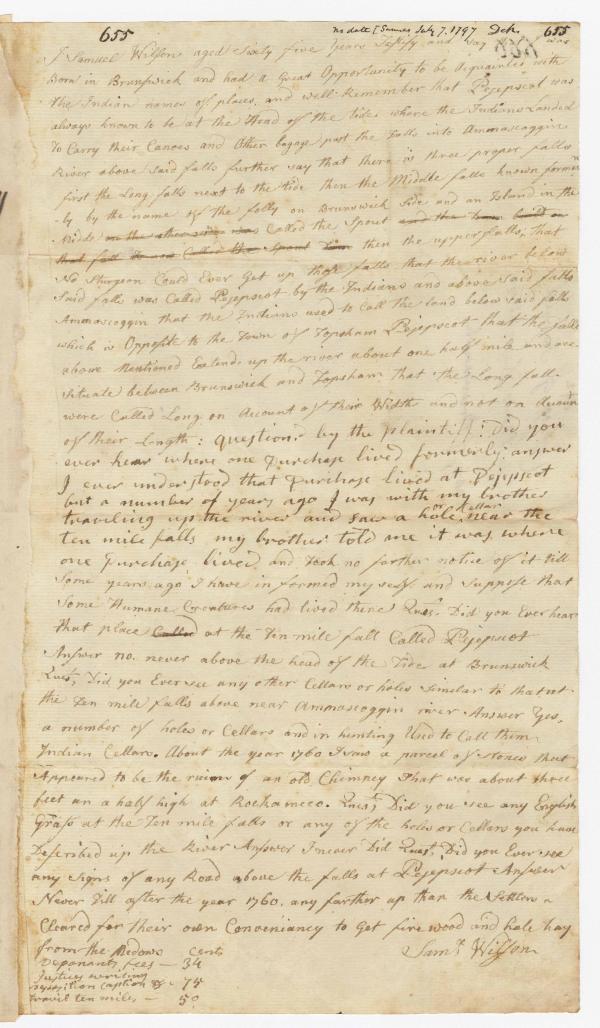 655 no date [Sumner July 7. 1797 Dck. 655
I Samuel Willson aged Sixty five Years testify and say I was
Born in Brunfwick and had a Great Opportunity to be Acquainted with
the Indian names of places, and well Remember that Pejepscot was
always known to be at the Head of the tide where the Indians Landed
To Carry their Canoes and Other bagage past the Falls into Ammascoggin
River above said falls further say that there is three proper falls
first the Long falls next to the tide then the Middle falls known former
-ly by the name of the falls on Brunswick Side and an Island in the
Midds Called the Spout then the upper falls, that
No Sturgeon Could Ever Get up those falls that the river below
Said falls was Called Pejepscot by the Indians and above Said falls
Ammascoggin that the Indians used to Call the land below said falls
which is Opposite to the Town of Topsham Pejepscot that the falls
above Mentioned Extends up the river about one half mile and are
Situate between Brunswick and Topsham that the Long fall
were Called Long on Account of their Width and not on Account
of their Length: questiond by the plaintiff: Did you
ever hear where one Purchase lived formerly: answer
I ever understood that Purchase lived at Pejepscot
but a number of years ago I was with my brother
traveling up the river and saw a hole or Cellar near the
ten mile falls my brother told me it was where
one Purchase lived, and took no farther notice of it till
Some years ago I have informed myself and Suppose that
Some Humane Creatures had lived there Quest. Did you Ever hear
that place Called at the Ten mile fall Called Pejepscot
Answer no. never above the head of the Tide at Brunswick
Quest, Did you Ever see any other Cellars or holes Similar to that at
the Ten mile falls above near Ammascoggin river Answer Yes,
a number of holes or Cellars and in hunting Used to Call them
Indian Cellars. About the year 1760 I saw a parcel of Stones that
Appeared to be the ruins of an old Chimney That was about three
feet an a half high at Rockameco. Quest, Did you see any English
Grass at the Ten mile falls or any of the holes or Cellars you have
Described up the River Answer I never Did Quest, Did you Ever see
any Signs of any Road above the falls at Pejepscot Answer
Never till after the year 1760. any farther up than the Settlers
Cleared for their own Conveniancy to Get fire wood and hale hay
from the Medows
Samll. Willson
cents
Deponants fees — 34
Justices writing
Deposition caption &c - 75
travil ten miles — 50